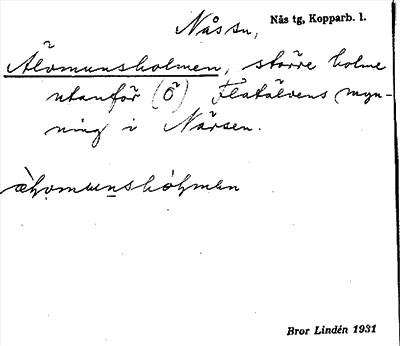 Nås sn, Nås tg, Kopparb. l.
Älvmunsholmen, större holme
utanför (Ö) Flatälvens myn-
ning i Närsen.
Bror Lindén 1931